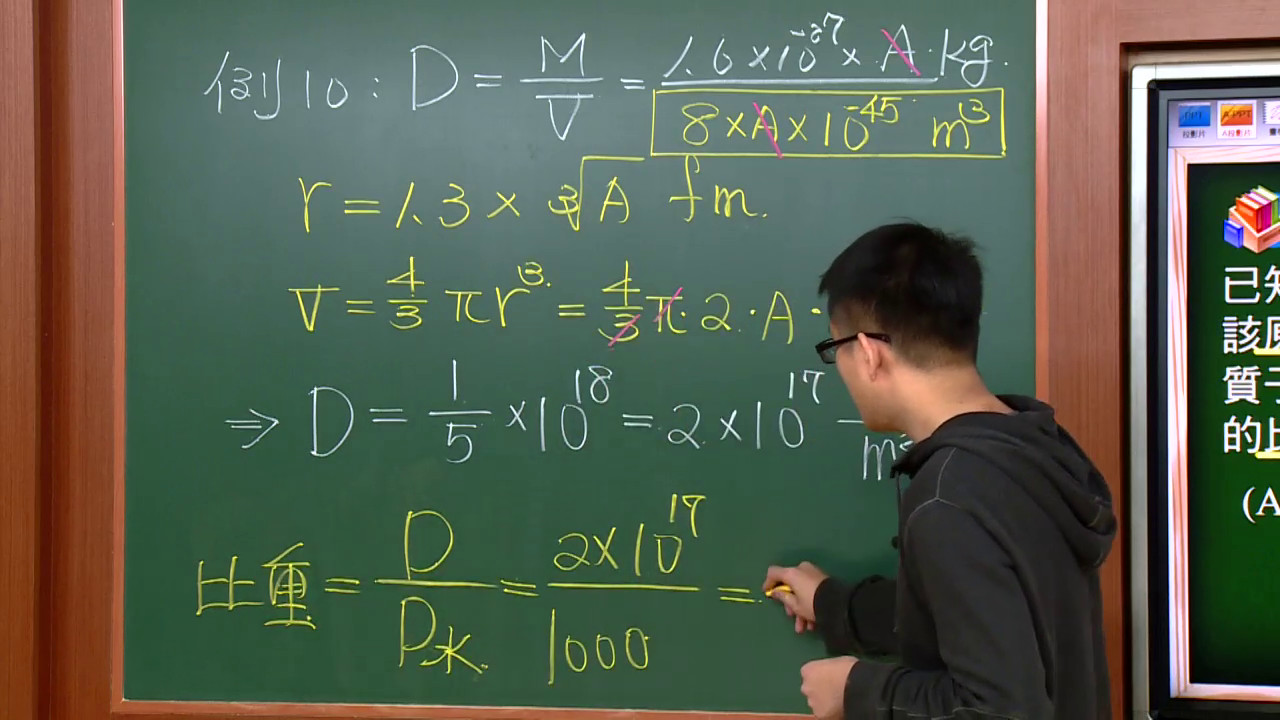 例10: D = M/V = 1.6×10⁻²⁷×A·kg. / 8×A×10⁻⁴⁵ m³
r = 1.3 × ³√A fm.
V = 4/3 πr³ = 4/3 π·2·A·
⇒ D = 1/5 ×10¹⁸ = 2×10¹⁷
比重 = D/ρ水 = 2×10¹⁷/1000 =
投影片
A投影片
已知
該原
質子
的比
(A